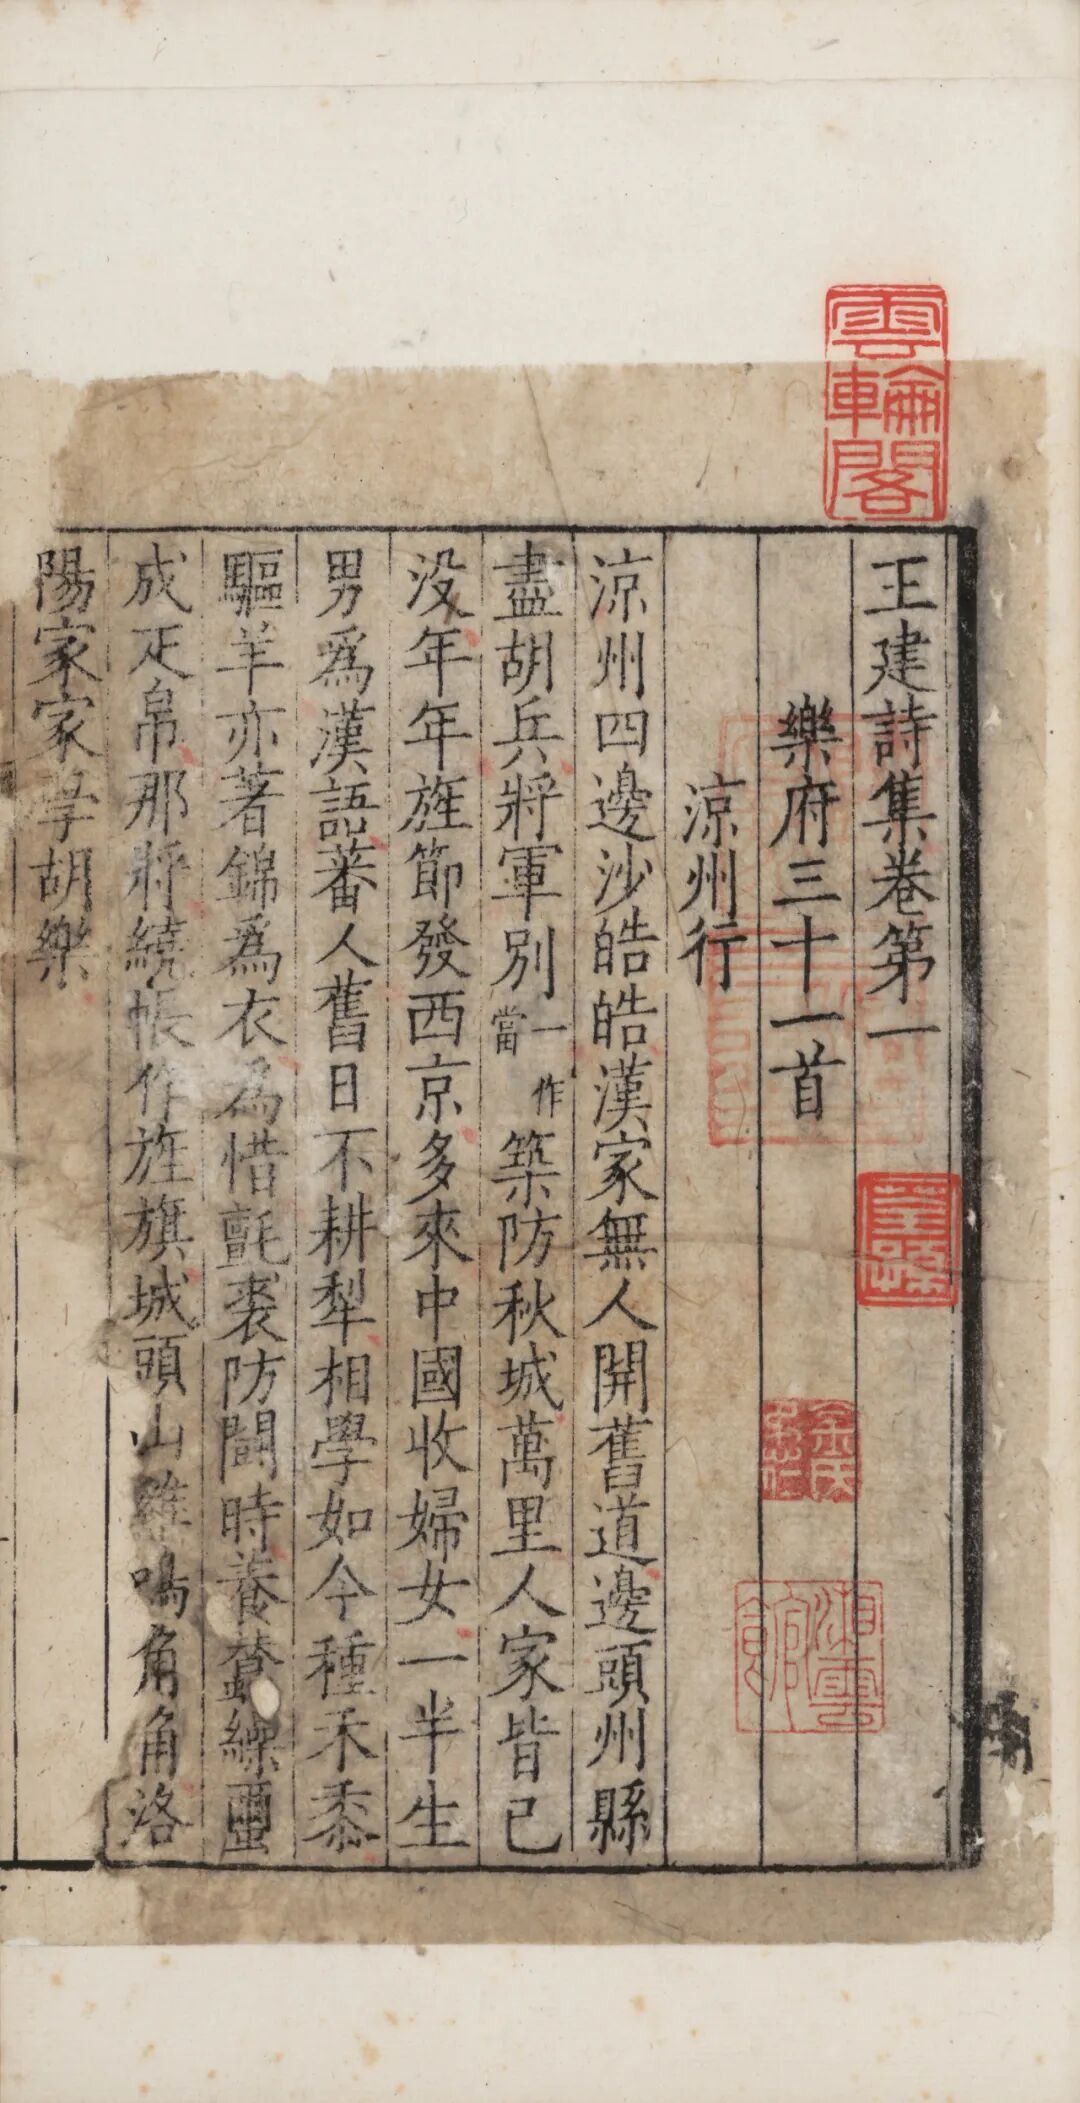 王建詩集卷第一
樂府三十一首
涼州行
涼州四邊沙皓皓漢家無人開舊道邊頭州縣
盡胡兵將軍別一作當築防秋城萬里人家皆已
没年年旌節發西京多來中國收婦女一半生
男爲漢語蕃人舊日不耕犁相學如今種禾黍
驅羊亦著錦爲衣爲惜氈裘防鬪時養蠶繰繭
成疋帛那將繞帳作旌旗城頭山雞鳴角角洛
陽家家學胡樂
雲輪閣
荃孫
湘雲館